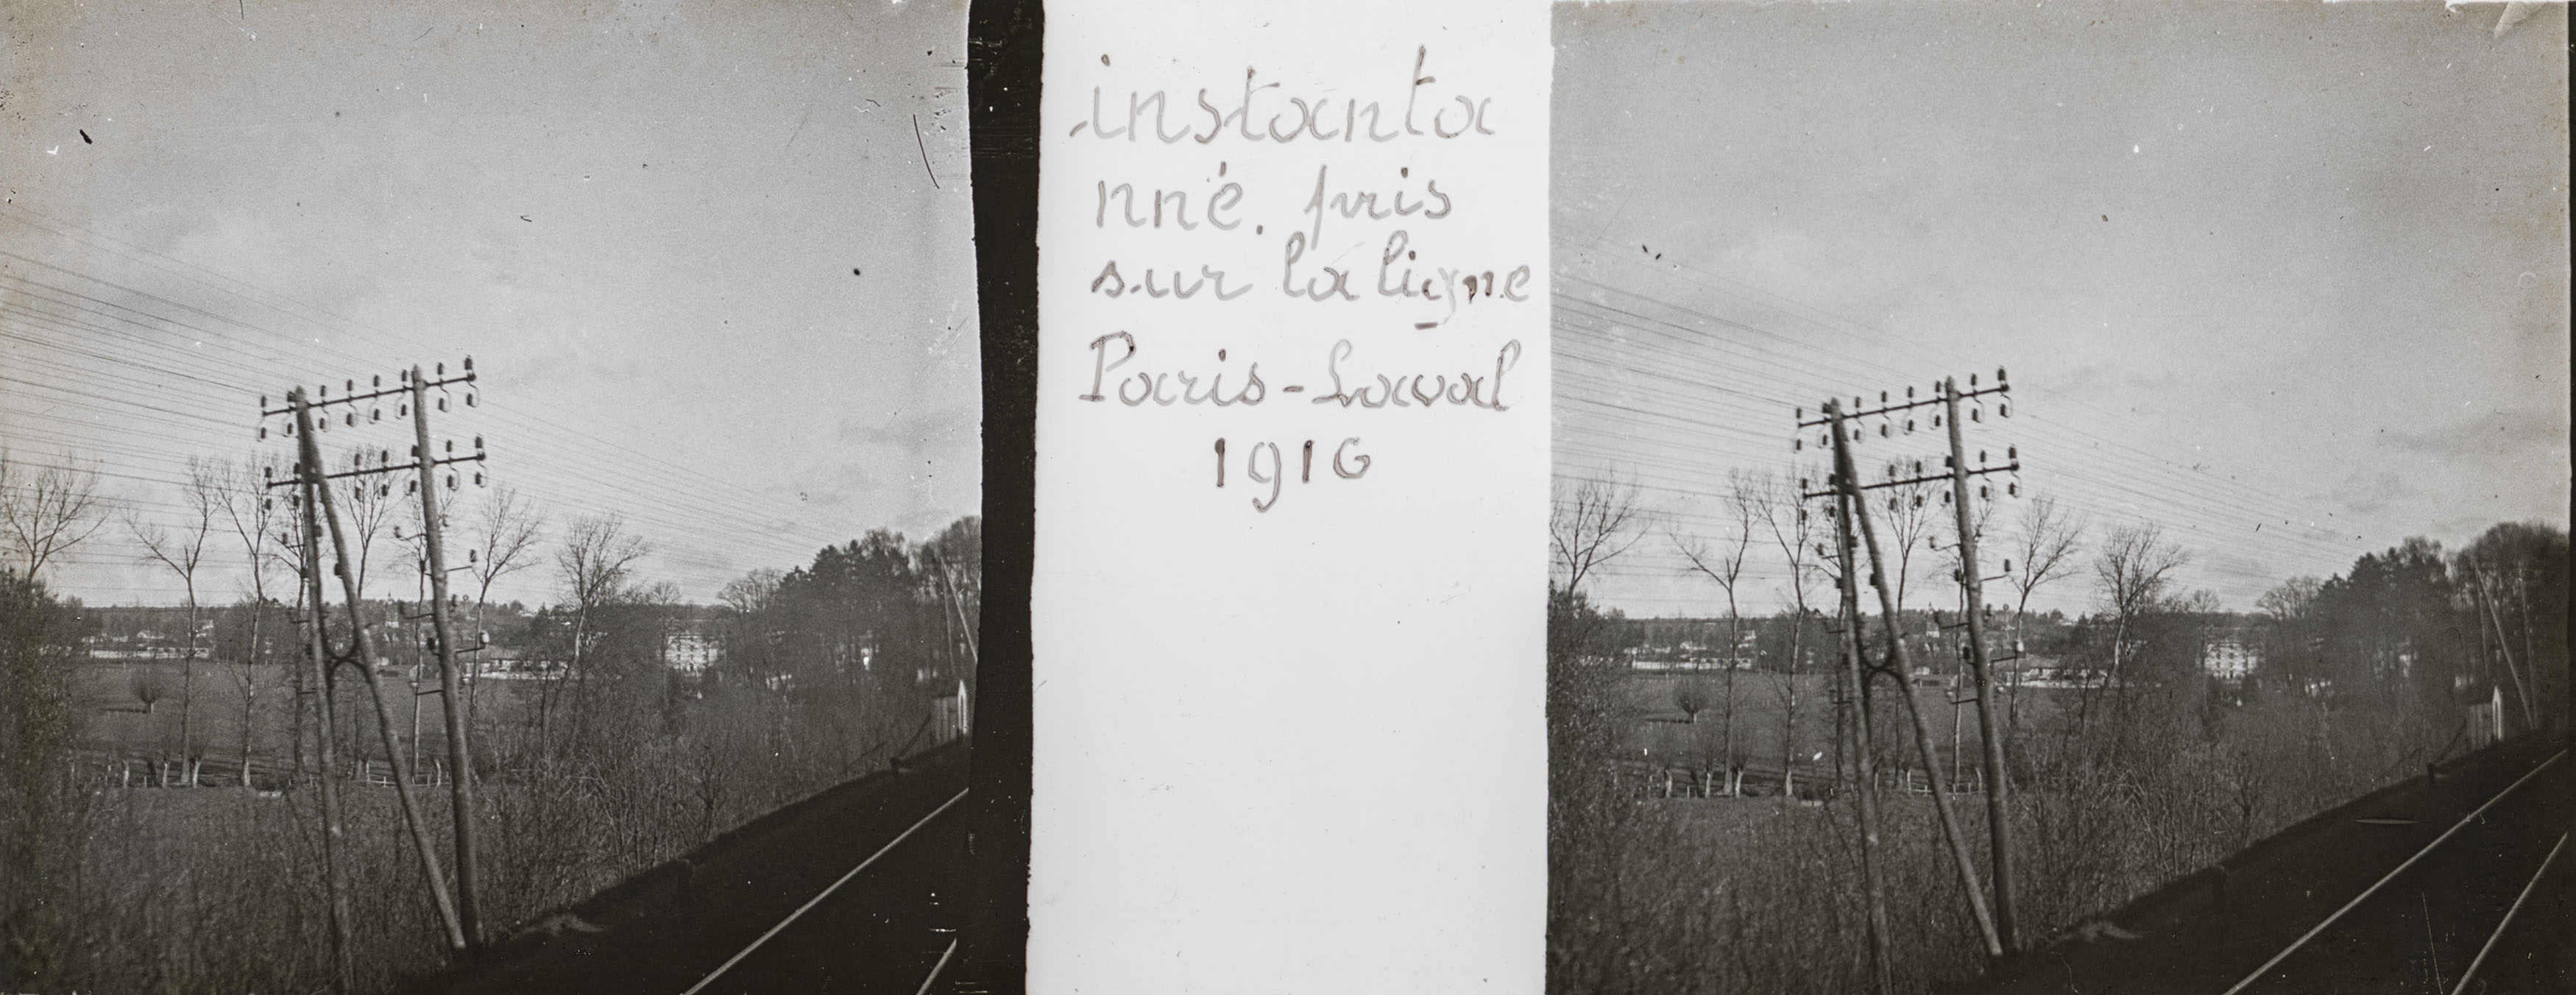 instanta
nné. pris
sur la ligne
Paris-Laval
1916